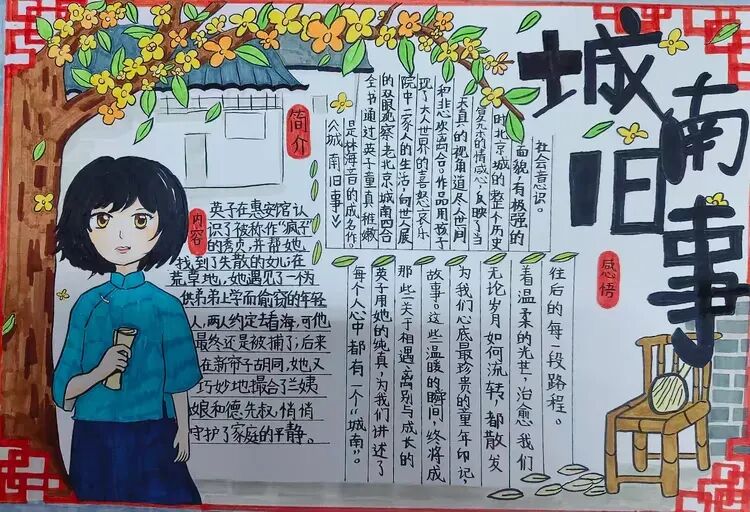 城南旧事
简介
《城南旧事》
是林海音的成名作
全书通过英子童真稚嫩
的双眼观察老北京城南四合
院中一家人的生活,向世人展
现了大人世界的喜怒哀乐
和悲欢离合。作品用孩子
天真的视角道尽人世间
复杂的情感,反映了当
时北京城的整个历史
面貌,有极强的
社会意识。
内容
英子在惠安馆认
识了被称作"疯子"
的秀贞,并帮她
找到了失散的女儿;在
荒草地,她遇见了一个为
供弟弟上学而偷窃的年轻
人,两人约定去看海,可他
最终还是被捕了;后来
在新帘子胡同,她又
巧妙地撮合了兰姨
娘和德先叔,悄悄
守护了家庭的平静。
感悟
每个人心中都有一个"城南"。
英子用她的纯真,为我们讲述了
那些关于相遇、离别与成长的
故事。这些温暖的瞬间,终将成
为我们心底最珍贵的童年印记,
无论岁月如何流转,都散发
着温柔的光芒,治愈我们
往后的每一段路程。